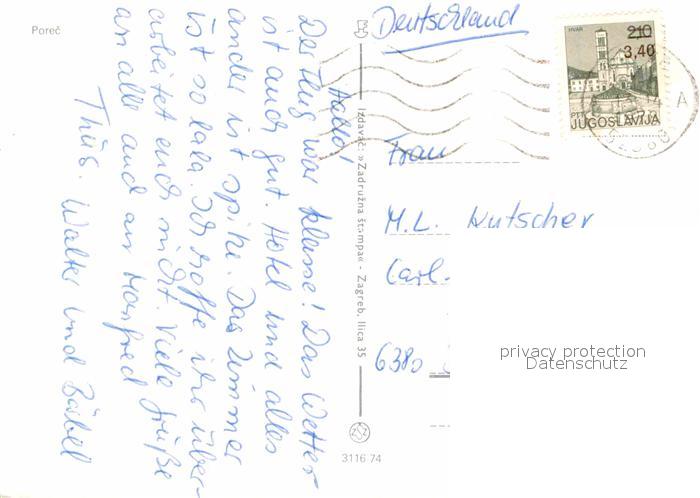 Poreč
Hallo!
Der Flug war klasse! Das Wetter
ist auch gut. Hotel und alles
andere ist spitze. Das Zimmer
ist so lala. Ich hoffe ihr über-
arbeitet euch nicht. Viele Grüße
an alle und an Manfred
Thüs. Walter und Bärbel
Izdavač: »Zadružna štampa« - Zagreb, Ilica 35
3116 74
Deutschland
HVAR
2,10
3,40
PTT
JUGOSLAVIJA
A
Frau
M.L. Kutscher
Carl-
6380
privacy protection
Datenschutz